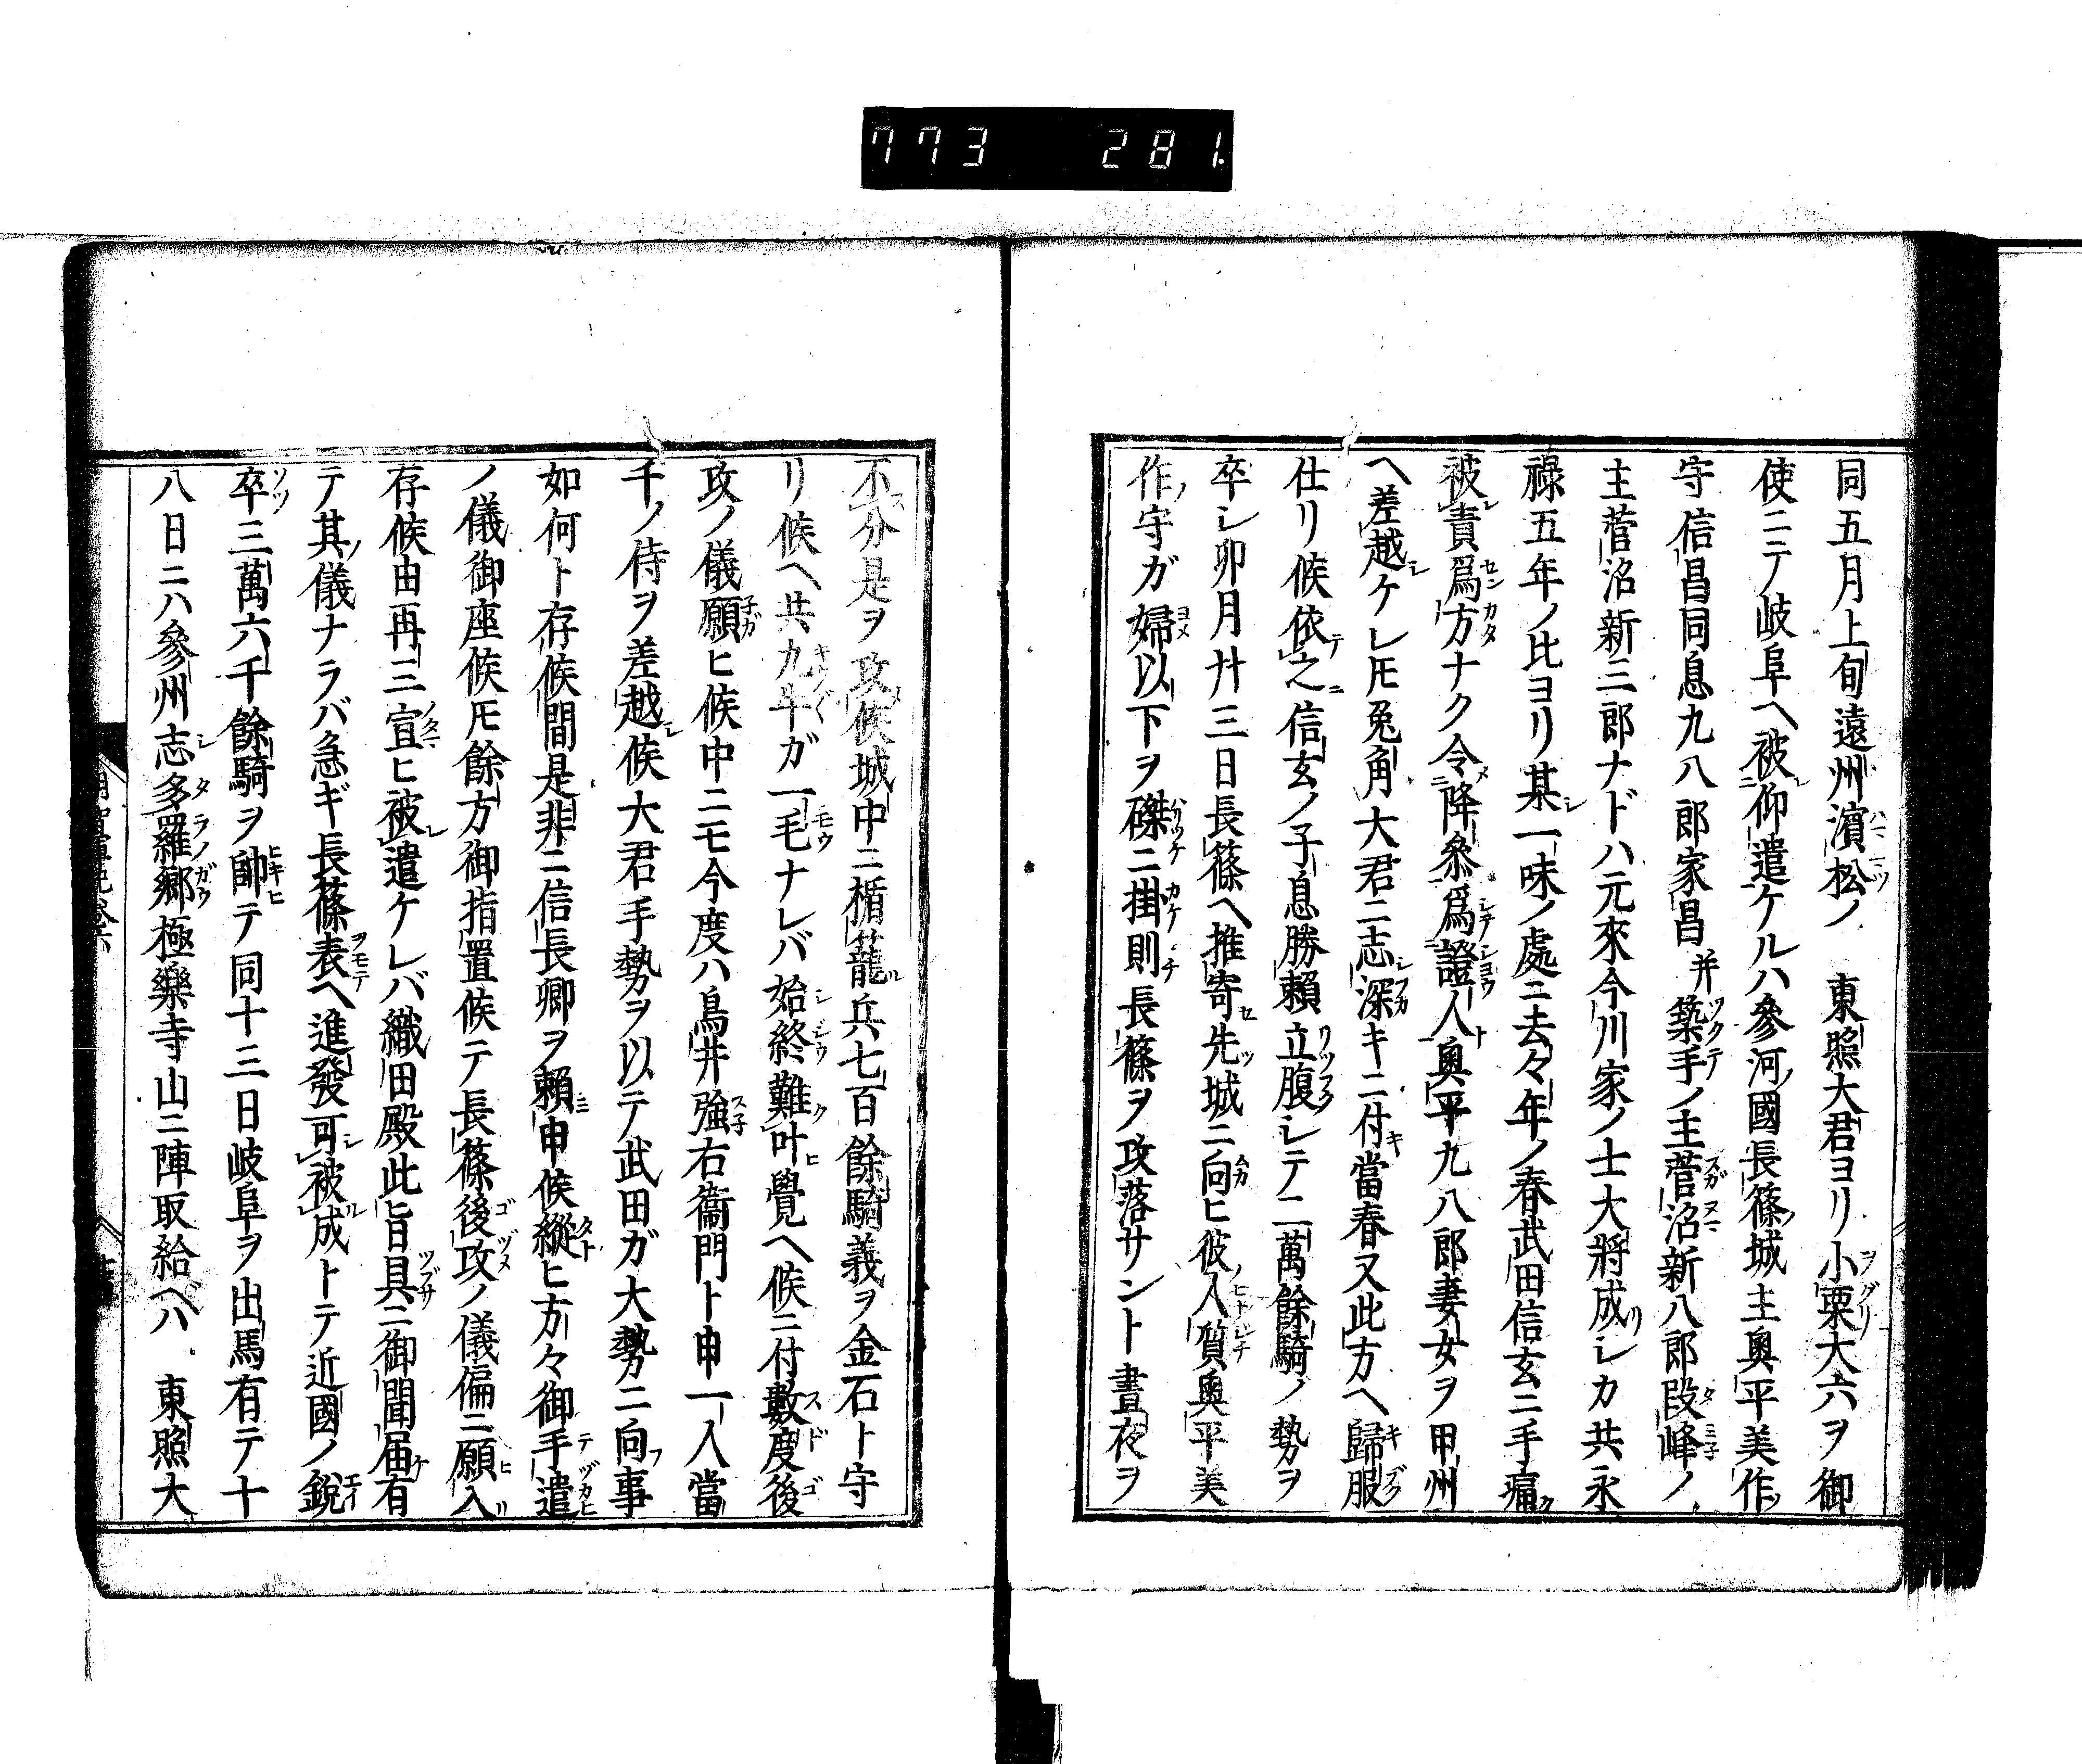 773 281.
同五月上旬遠州濵松ノ 東照大君ヨリ小栗大六ヲ御
使ニテ岐阜ヘ被仰遣ケルハ參河ノ國長篠ノ城主奥平美作
守信昌同息九八郎家昌并築手ノ主菅沼新八郎段峰ノ
主菅沼新三郎ナドハ元來今川家ノ士大將成シカ共永
祿五年ノ比ヨリ某一味ノ處ニ去々年ノ春武田信玄ニ手痛
被責爲方ナク令降參爲證人奥平九八郎妻女ヲ甲州
ヘ差越ケレ𪜈兔角大君ニ志深キニ付當春又此方ヘ歸服
仕リ候依之信玄ノ子息勝賴立腹シテ二萬餘騎ノ勢ヲ
卒シ卯月廿三日長篠ヘ推寄先城ニ向ヒ彼人質奥平美
作守ガ婦以下ヲ磔ニ掛則長篠ヲ攻落サント晝夜ヲ
不分是ヲ攻候城中ニ楯籠兵七百餘騎義ヲ金石ト守
リ候ヘ共九牛ガ一毛ナレバ始終難叶覺ヘ候ニ付數度後
攻ノ儀願ヒ候中ニモ今度ハ鳥井強右衞門ト申一人當
千ノ侍ヲ差越候大君手勢ヲ以テ武田ガ大勢ニ向事
如何ト存候間是非ニ信長卿ヲ賴申候縱ヒ方々御手遣
ノ儀御座候𪜈餘方御指置候テ長篠後攻ノ儀偏ニ願入
存候由再三宣ヒ被遣ケレバ織田殿此旨具ニ御聞届有
テ其ノ儀ナラバ急ギ長篠表ヘ進發可被成トテ近國ノ鋭
卒三萬六千餘騎ヲ帥テ同十三日岐阜ヲ出馬有テ十
八日ニハ參州志多羅郷極樂寺山ニ陣取給ヘバ 東照大